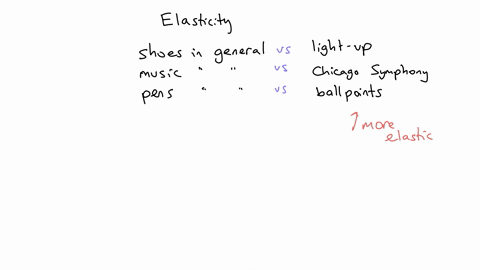 Elasticity
shoes in general vs light-up
music " " vs Chicago Symphony
pens " " vs ballpoints
↑ more
elastic